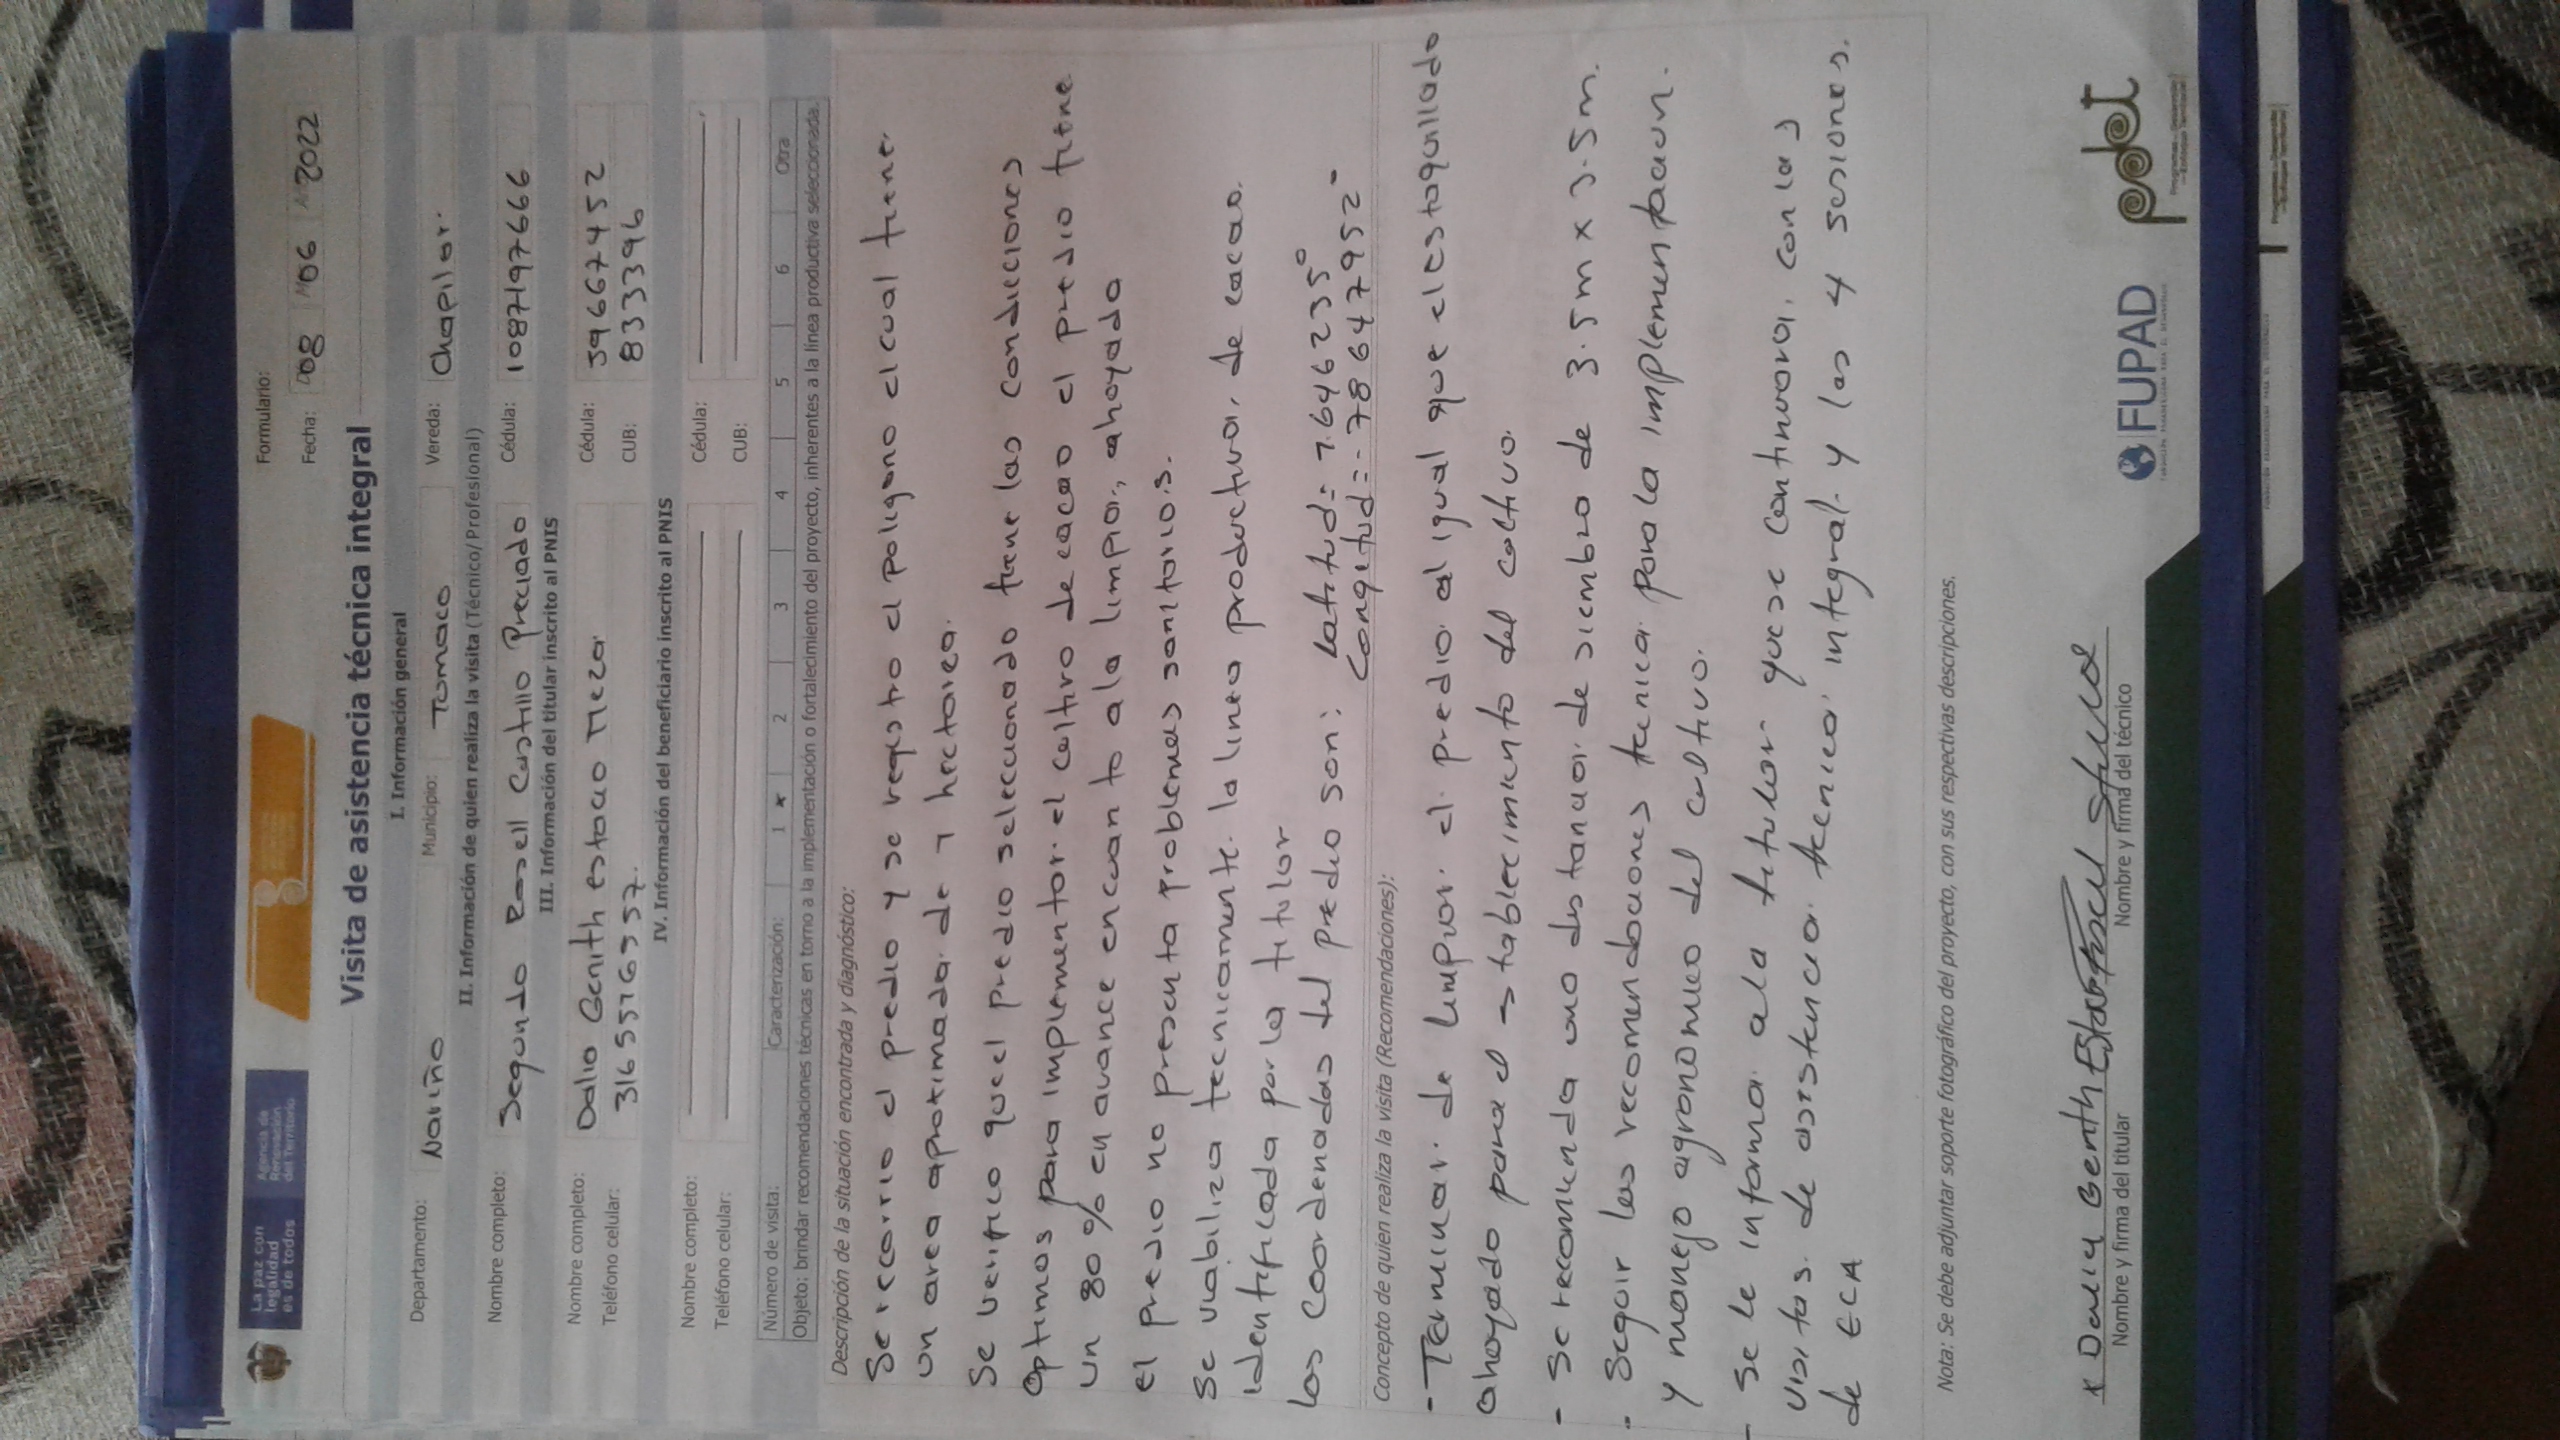 La paz con
legalidad
es de todos
Agencia de
Renovación
del Territorio
Formulario:
Fecha: D08 M06 A 2022
Visita de asistencia técnica integral
I. Información general
Departamento: Nariño Municipio: Tumaco Vereda: Chapilar.
II. Información de quien realiza la visita (Técnico/ Profesional)
Nombre completo: Segundo Rosell Castillo Preciado Cédula: 1087197666
III. Información del titular inscrito al PNIS
Nombre completo: Dalia Genith estacio Meza Cédula: 39667452
Teléfono celular: 3165576957. CUB: 833396
IV. Información del beneficiario inscrito al PNIS
Nombre completo: Cédula:
Teléfono celular: CUB:
Número de visita: Caracterización: 1 x 2 3 4 5 6 Otra
Objeto: brindar recomendaciones técnicas en torno a la implementación o fortalecimiento del proyecto, inherentes a la línea productiva seleccionada.
Descripción de la situación encontrada y diagnóstico:
Se recorrio el predio y se registro el poligono el cual tiene.
un area aproximada. de 1 hectarea.
Se verifico que el predio seleccionado tiene las condiciones
optimas para implementar. el cultivo de cacao el predio tiene
un 80% en avance encuanto ala limpia, ahoyado
el predio no presenta problemas sanitarios.
Se viabiliza tecnicamente. la linea productiva, de cacao.
identificada por la titular
las coordenadas del predio son: Latitud= 1.646235°
Longitud=-78.647952°
Concepto de quien realiza la visita (Recomendaciones):
- Terminar. de limpiar. el. predio. al igual que el estaquillado
ahoyado para el establecimiento del cultivo.
- Se recomienda una distancia. de siembra de 3.5m x 3.5m.
- Seguir las recomendaciones tecnica para la implementacion.
y manejo agronomico del cultivo.
- Se le informa. ala titular que se continuara, con las
visitas. de asistencia. tecnica integral. y las 4 sesiones.
de ECA
Nota: Se debe adjuntar soporte fotográfico del proyecto, con sus respectivas descripciones.
x Dalia Genith Estacio
Nombre y firma del titular
Nombre y firma del técnico
FUPAD
pdet